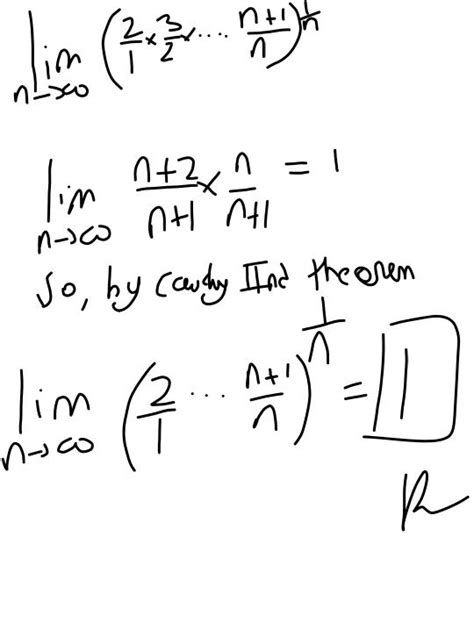 lim n→∞ (2/1 × 3/2 × .... n+1/n)^1/n
lim n→∞ n+2/n+1 × n/n+1 = 1
So, by Cauchy IInd theorem
lim n→∞ (2/1 ... n+1/n)^1/n = 1